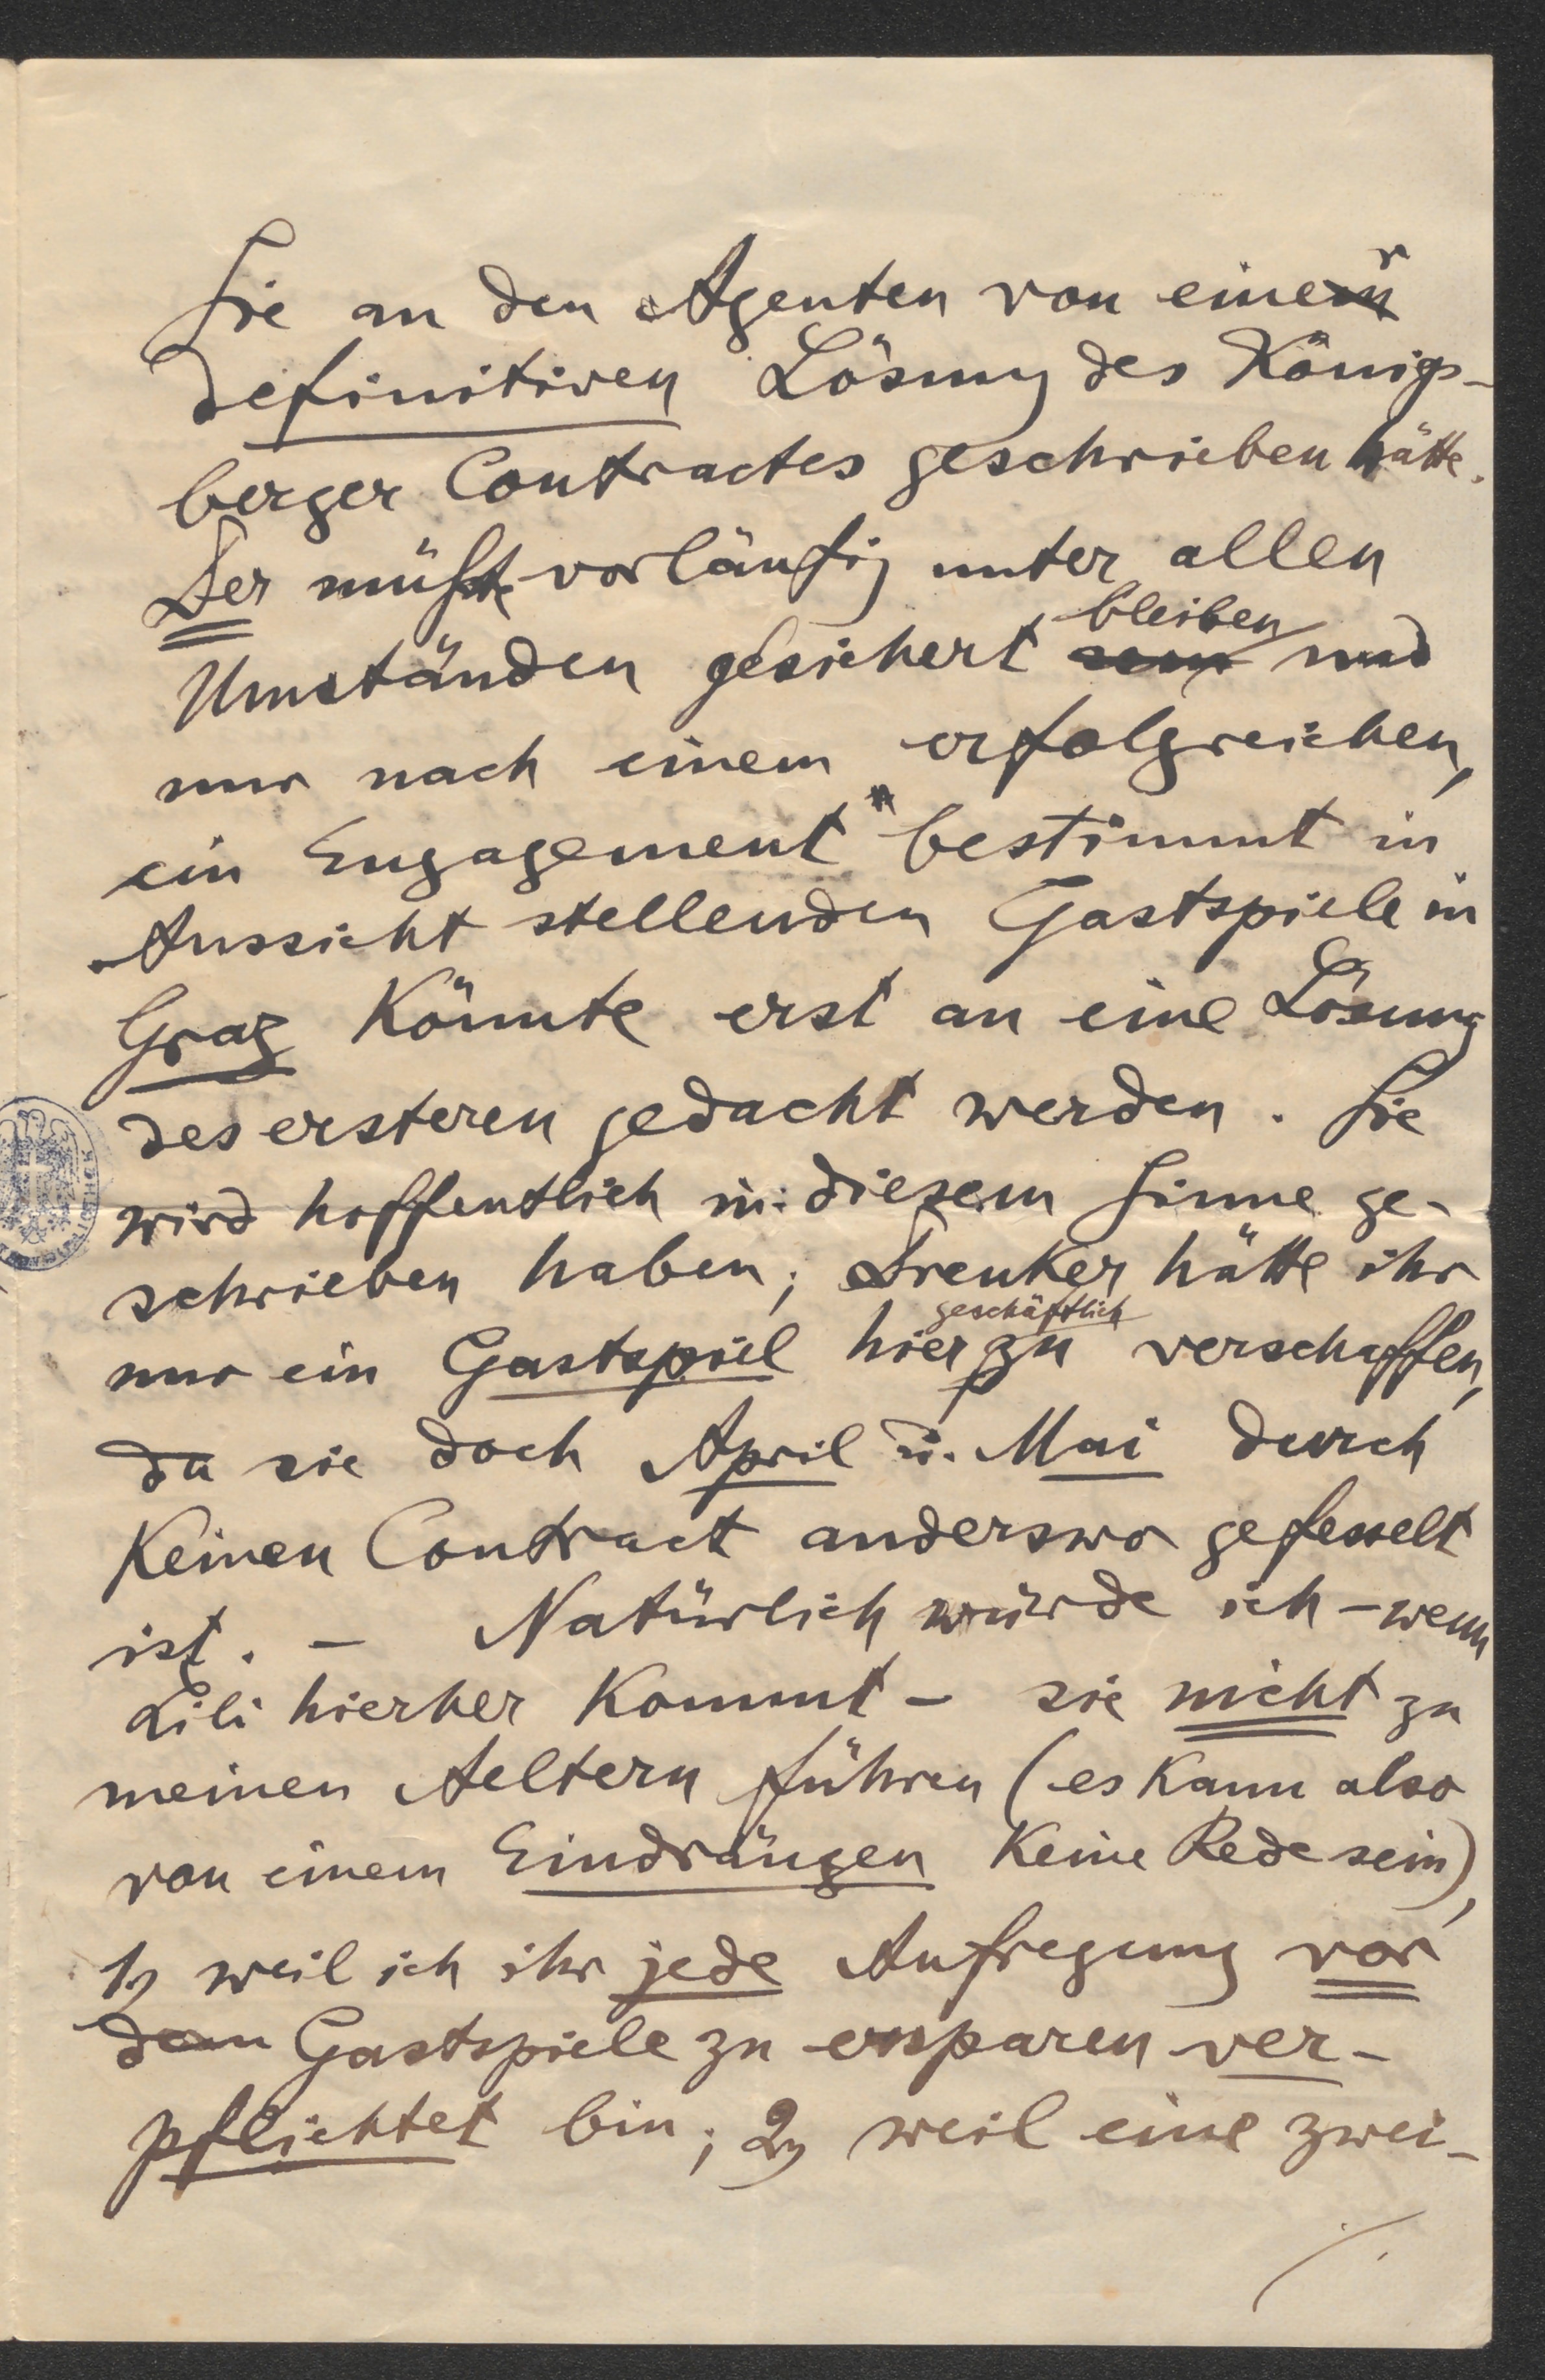 Sie an den Agenten von einer
definitiven Lösung des Königs-
berger Contractes geschrieben hätte.
Der müßte vorläufig unter allen
Umständen gesichert bleiben und
nur nach einem erfolgreichen,
ein Engagement bestimmt in
Aussicht stellenden Gastspiele in
Graz könnte erst an eine Lösung
des ersteren gedacht werden. Sie
wird hoffentlich in diesem Sinne ge-
schrieben haben; Drenker hätte ihr
nur ein Gastspiel hier geschäftlich zu verschaffen,
da sie doch April u. Mai durch
keinen Contract anderswo gefesselt
ist. – Natürlich würde ich – wenn
Lili hierher kommt – sie nicht zu
meinen Aeltern führen (es kann also
von einem Eindrängen keine Rede sein),
1) weil ich ihr jede Aufregung vor
dem Gastspiele zu ersparen ver-
pflichtet bin; 2) weil eine zwei-
./.